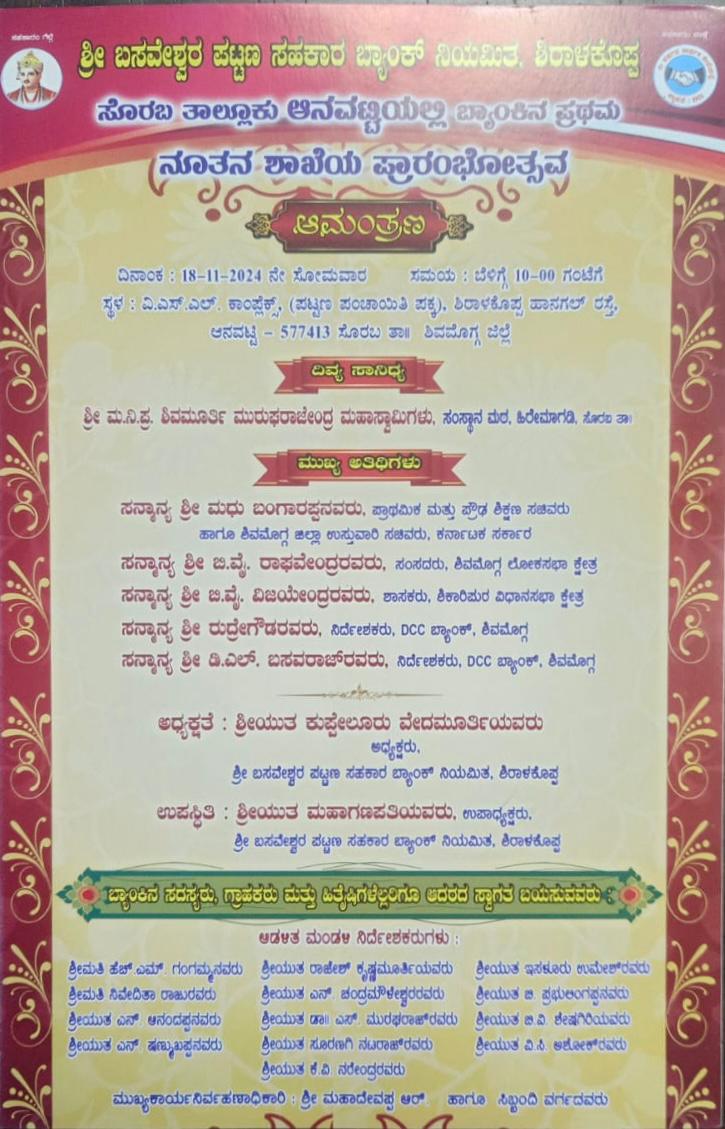 ಸಹಕಾರಂ ಗೆಲ್ಗೆ
ಸಹಕಾರಂ ಬಾಳ್ಗೆ
ಶ್ರೀ ಬಸವೇಶ್ವರ ಪಟ್ಟಣ ಸಹಕಾರ ಬ್ಯಾಂಕ್ ನಿಯಮಿತ, ಶಿರಾಳಕೊಪ್ಪ
ಸೊರಬ ತಾಲ್ಲೂಕು ಆನವಟ್ಟಿಯಲ್ಲಿ ಬ್ಯಾಂಕಿನ ಪ್ರಥಮ
ನೂತನ ಶಾಖೆಯ ಪ್ರಾರಂಭೋತ್ಸವ
ಆಮಂತ್ರಣ
ದಿನಾಂಕ : 18-11-2024 ನೇ ಸೋಮವಾರ ಸಮಯ : ಬೆಳಿಗ್ಗೆ 10-00 ಗಂಟೆಗೆ
ಸ್ಥಳ : ವಿ.ಎಸ್.ಎಲ್. ಕಾಂಪ್ಲೆಕ್ಸ್, (ಪಟ್ಟಣ ಪಂಚಾಯಿತಿ ಪಕ್ಕ), ಶಿರಾಳಕೊಪ್ಪ ಹಾನಗಲ್ ರಸ್ತೆ,
ಆನವಟ್ಟಿ - 577413 ಸೊರಬ ತಾ॥ ಶಿವಮೊಗ್ಗ ಜಿಲ್ಲೆ
ದಿವ್ಯ ಸಾನಿಧ್ಯ
ಶ್ರೀ ಮ.ನಿ.ಪ್ರ. ಶಿವಮೂರ್ತಿ ಮುರುಘರಾಜೇಂದ್ರ ಮಹಾಸ್ವಾಮಿಗಳು, ಸಂಸ್ಥಾನ ಮಠ, ಹಿರೇಮಾಗಡಿ, ಸೊರಬ ತಾ॥
ಮುಖ್ಯ ಅತಿಥಿಗಳು
ಸನ್ಮಾನ್ಯ ಶ್ರೀ ಮಧು ಬಂಗಾರಪ್ಪನವರು, ಪ್ರಾಥಮಿಕ ಮತ್ತು ಪ್ರೌಢ ಶಿಕ್ಷಣ ಸಚಿವರು
ಹಾಗೂ ಶಿವಮೊಗ್ಗ ಜಿಲ್ಲಾ ಉಸ್ತುವಾರಿ ಸಚಿವರು, ಕರ್ನಾಟಕ ಸರ್ಕಾರ
ಸನ್ಮಾನ್ಯ ಶ್ರೀ ಬಿ.ವೈ. ರಾಘವೇಂದ್ರರವರು, ಸಂಸದರು, ಶಿವಮೊಗ್ಗ ಲೋಕಸಭಾ ಕ್ಷೇತ್ರ
ಸನ್ಮಾನ್ಯ ಶ್ರೀ ಬಿ.ವೈ. ವಿಜಯೇಂದ್ರರವರು, ಶಾಸಕರು, ಶಿಕಾರಿಪುರ ವಿಧಾನಸಭಾ ಕ್ಷೇತ್ರ
ಸನ್ಮಾನ್ಯ ಶ್ರೀ ರುದ್ರೇಗೌಡರವರು, ನಿರ್ದೇಶಕರು, DCC ಬ್ಯಾಂಕ್, ಶಿವಮೊಗ್ಗ
ಸನ್ಮಾನ್ಯ ಶ್ರೀ ಡಿ.ಎಲ್. ಬಸವರಾಜ್‌ರವರು, ನಿರ್ದೇಶಕರು, DCC ಬ್ಯಾಂಕ್, ಶಿವಮೊಗ್ಗ
ಅಧ್ಯಕ್ಷತೆ : ಶ್ರೀಯುತ ಕುಪ್ಪೇಲೂರು ವೇದಮೂರ್ತಿಯವರು
ಅಧ್ಯಕ್ಷರು,
ಶ್ರೀ ಬಸವೇಶ್ವರ ಪಟ್ಟಣ ಸಹಕಾರ ಬ್ಯಾಂಕ್ ನಿಯಮಿತ, ಶಿರಾಳಕೊಪ್ಪ
ಉಪಸ್ಥಿತಿ : ಶ್ರೀಯುತ ಮಹಾಗಣಪತಿಯವರು, ಉಪಾಧ್ಯಕ್ಷರು,
ಶ್ರೀ ಬಸವೇಶ್ವರ ಪಟ್ಟಣ ಸಹಕಾರ ಬ್ಯಾಂಕ್ ನಿಯಮಿತ, ಶಿರಾಳಕೊಪ್ಪ
ಬ್ಯಾಂಕಿನ ಸದಸ್ಯರು, ಗ್ರಾಹಕರು ಮತ್ತು ಹಿತೈಷಿಗಳೆಲ್ಲರಿಗೂ ಆದರದ ಸ್ವಾಗತ ಬಯಸುವವರು :
ಆಡಳಿತ ಮಂಡಳಿ ನಿರ್ದೇಶಕರುಗಳು :
ಶ್ರೀಮತಿ ಹೆಚ್.ಎಮ್. ಗಂಗಮ್ಮನವರು ಶ್ರೀಯುತ ರಾಜೇಶ್ ಕೃಷ್ಣಮೂರ್ತಿಯವರು ಶ್ರೀಯುತ ಇಸಳೂರು ಉಮೇಶ್‌ರವರು
ಶ್ರೀಮತಿ ನಿವೇದಿತಾ ರಾಜುರವರು ಶ್ರೀಯುತ ಎನ್. ಚಂದ್ರಮೌಳೇಶ್ವರರವರು ಶ್ರೀಯುತ ಬಿ. ಪ್ರಭುಲಿಂಗಪ್ಪನವರು
ಶ್ರೀಯುತ ಎನ್. ಆನಂದಪ್ಪನವರು ಶ್ರೀಯುತ ಡಾ॥ ಎಸ್. ಮುರಘರಾಜ್‌ರವರು ಶ್ರೀಯುತ ಬಿ.ವಿ. ಶೇಷಗಿರಿಯವರು
ಶ್ರೀಯುತ ಎನ್ ಷಣ್ಮುಖಪ್ಪನವರು ಶ್ರೀಯುತ ಸೂರಣಗಿ ನಟರಾಜ್‌ರವರು ಶ್ರೀಯುತ ವಿ.ಸಿ. ಅಶೋಕ್‌ರವರು
ಶ್ರೀಯುತ ಕೆ.ವಿ. ನರೇಂದ್ರರವರು
ಮುಖ್ಯಕಾರ್ಯನಿರ್ವಹಣಾಧಿಕಾರಿ : ಶ್ರೀ ಮಹಾದೇವಪ್ಪ ಆರ್. ಹಾಗೂ ಸಿಬ್ಬಂದಿ ವರ್ಗದವರು